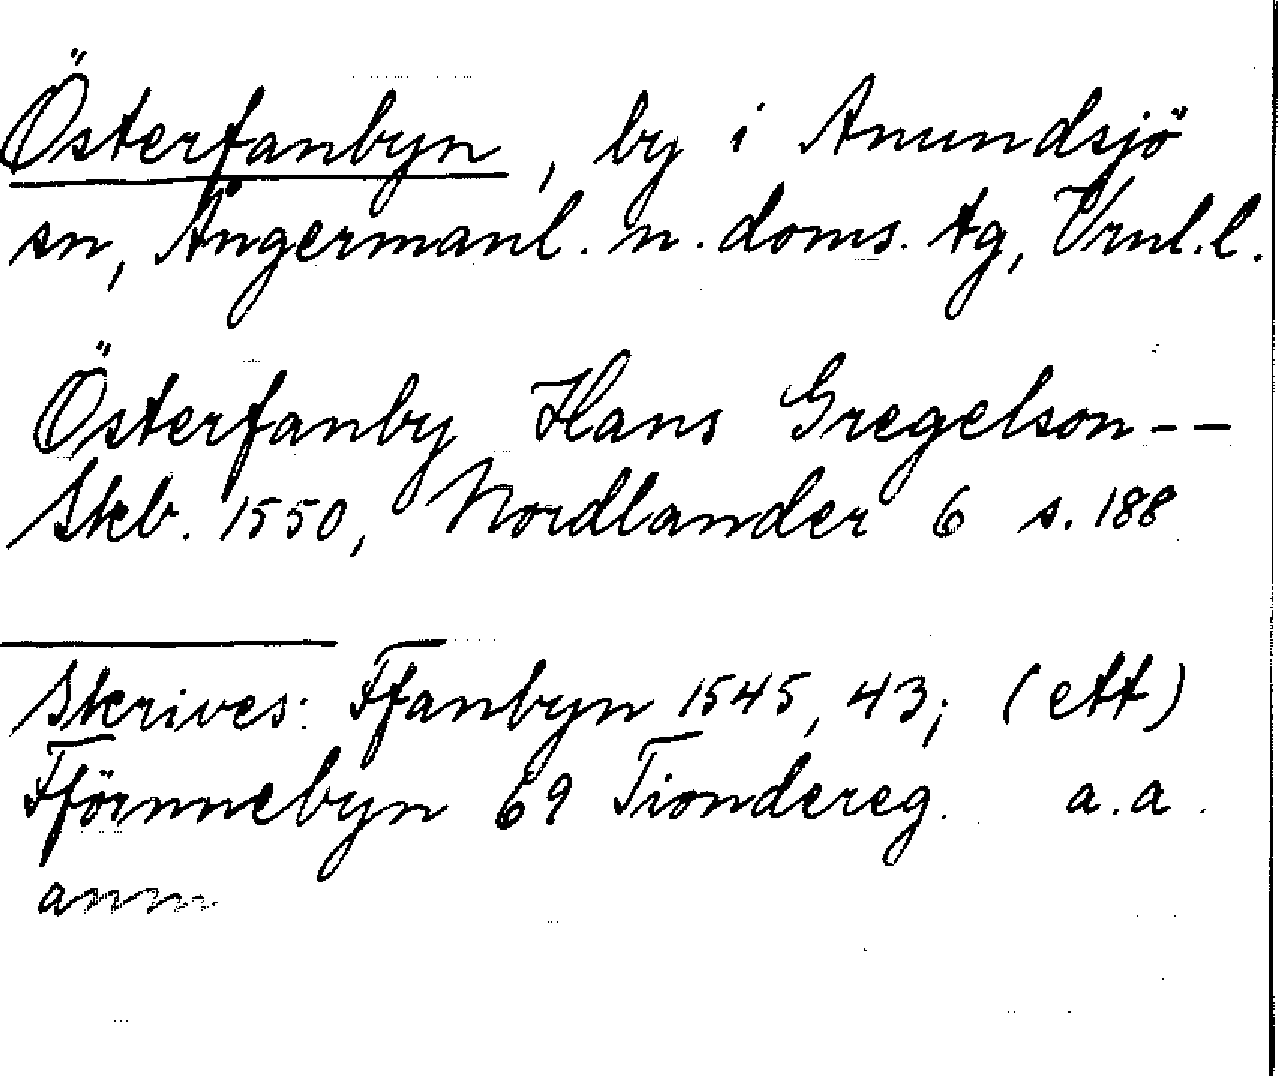 Österfanbyn, by i Anundsjö
sn, Ångermanl. n. doms. tg, Vrnl.l.
Österfanby Hans Gregelson--
Skb. 1550, Nordlander 6 s. 188
Skrives: Ffanbyn 1545, 43; (ett)
Ffönnebyn 69 Tiondereg. a.a.
anm